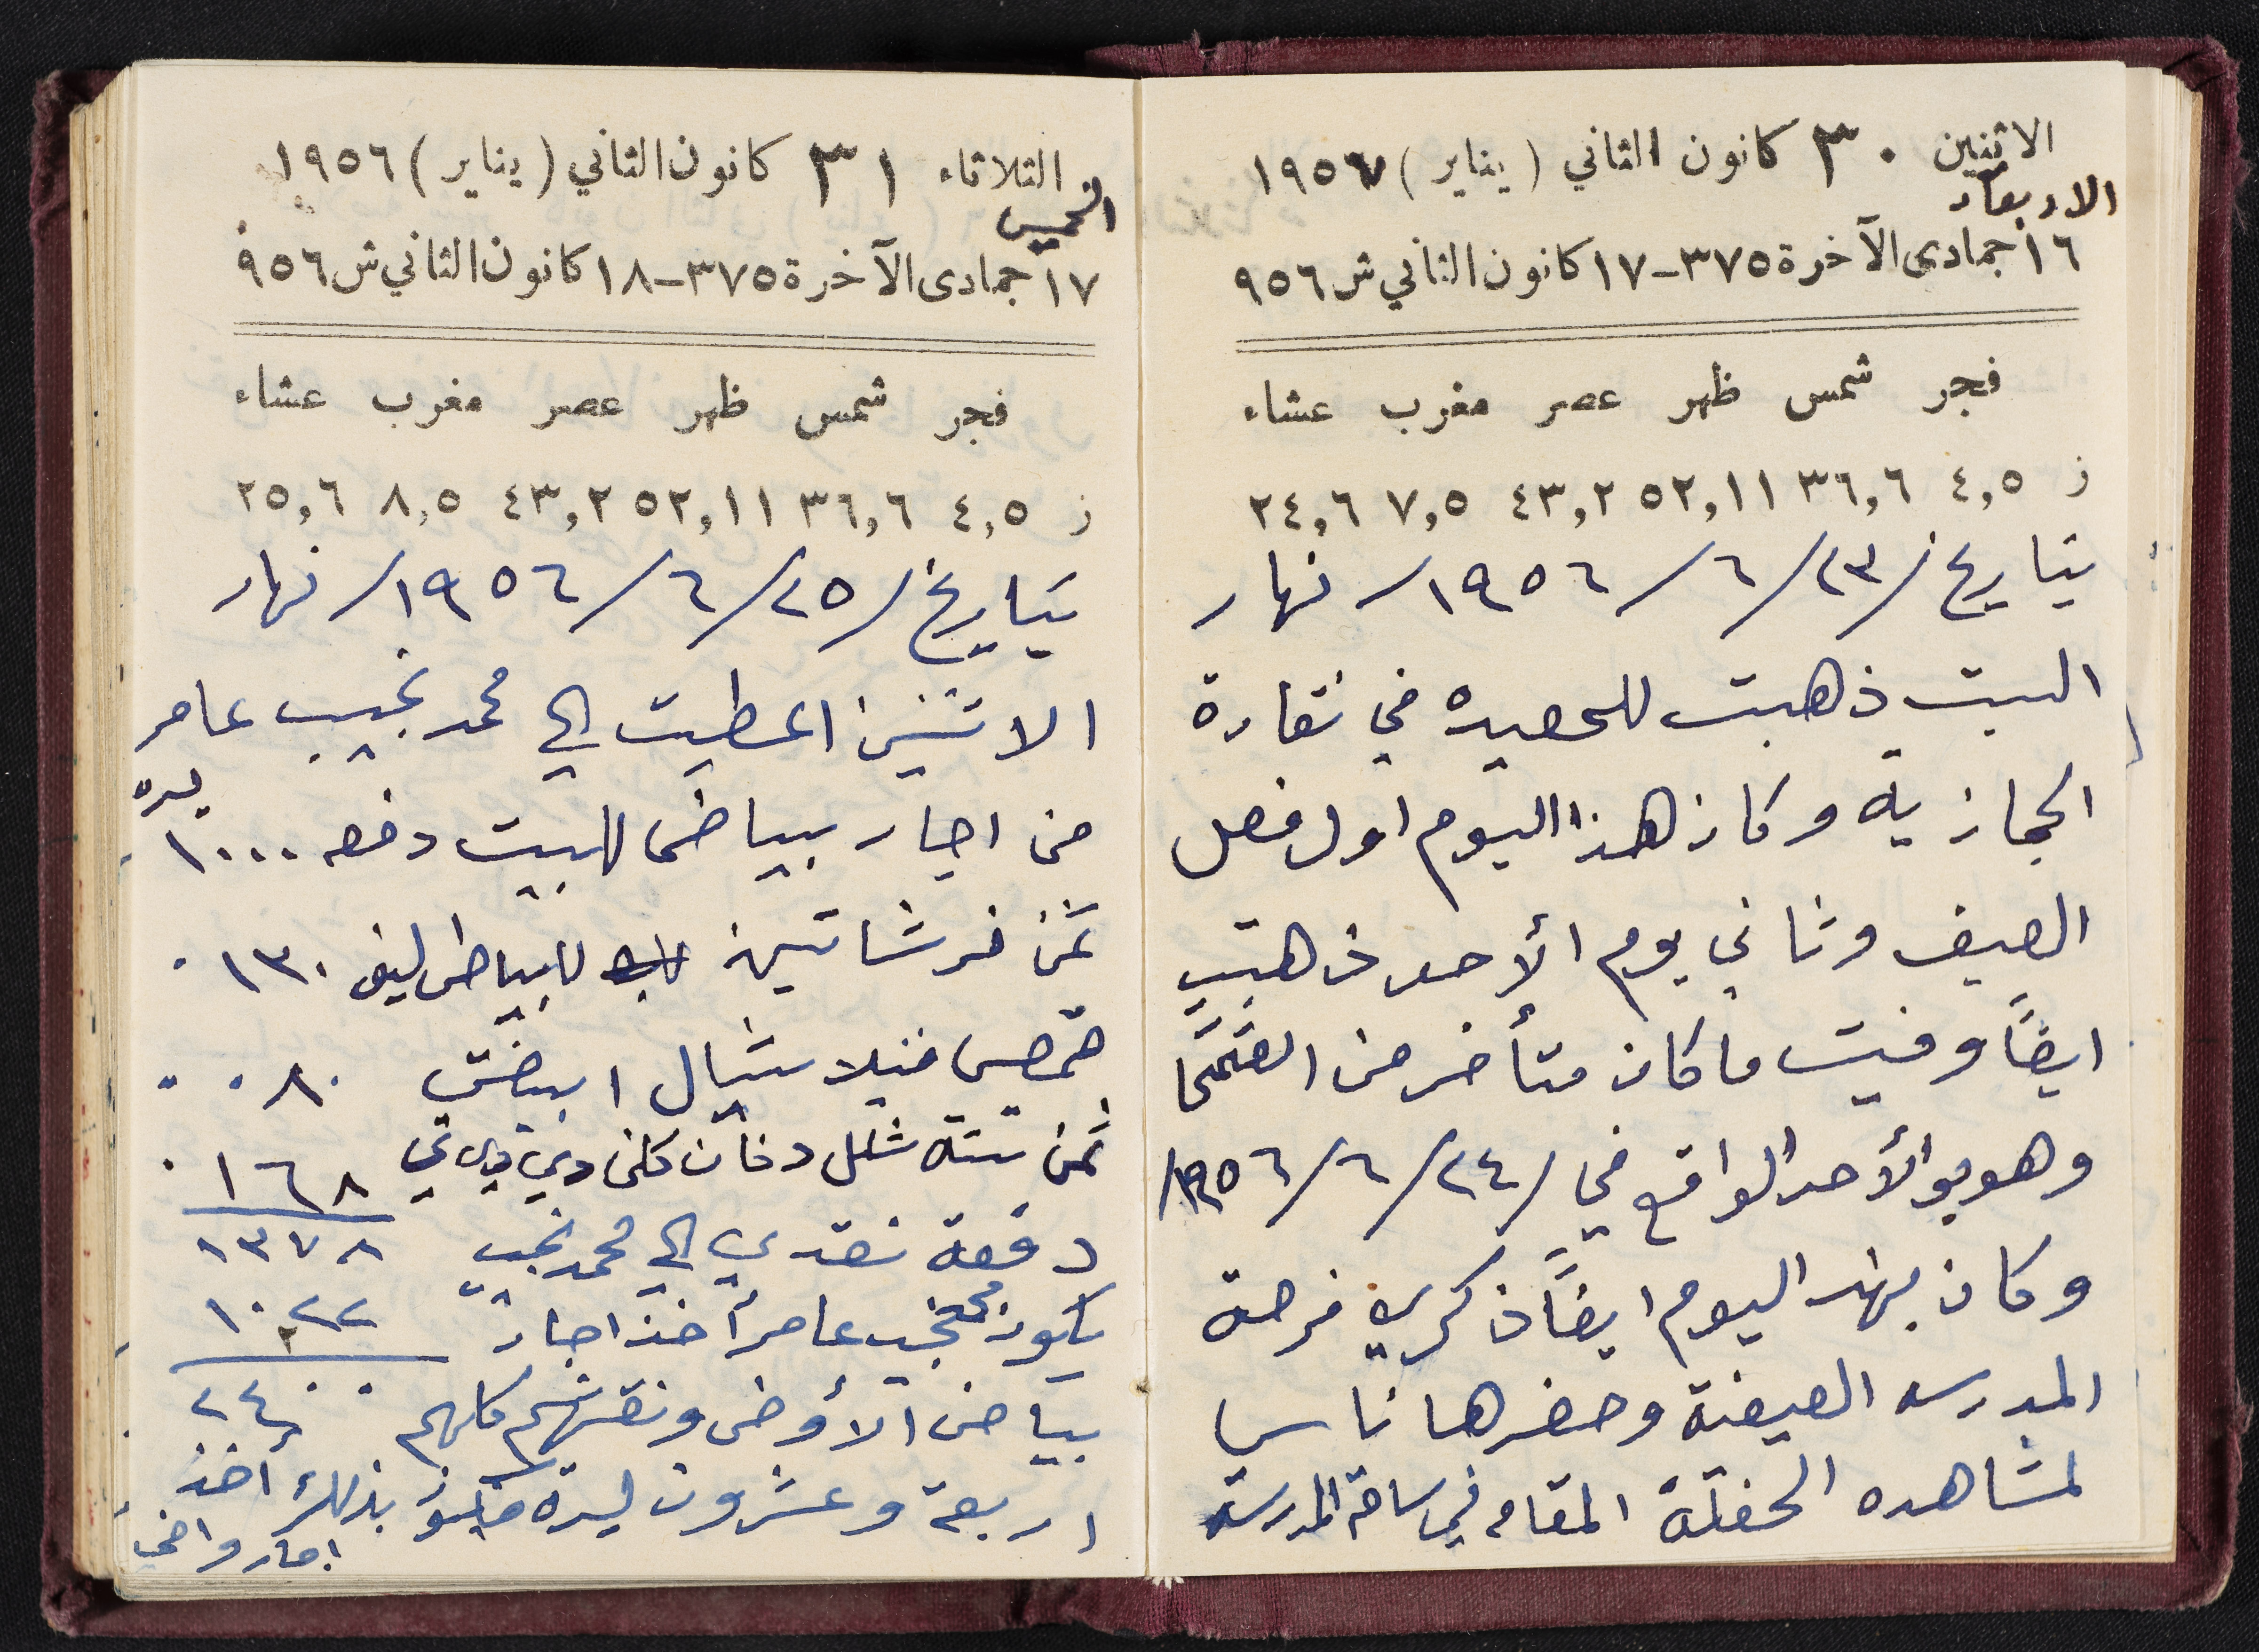 الاثنين ٣٠ كانون الثاني (يناير) ١٩٥٧
الاربعاء
١٦ جمادى الآخرة ٣٧٥-١٧ كانون الثاني ش ٩٥٦
فجر شمس ظهر عصر مغرب عشاء
ز ٤,٥ ٣٦,٦ ٥٢,١١ ٤٣,٢ ٧,٥ ٢٤,٦
بتاريخ /٢٣/ ٦/ ١٩٥٦/ نهار
السبت ذهبت للصيد في نقارة
الحجازية وكان هذا اليوم اول فصل
الصيف وثاني يوم الأحد ذهبت
ايضاً وفيت ما كان متأخر من
وهو يو الأحد الواقع في /٢٤/ ٦/ ١٩٥٦/
وكان بهذا اليوم ايضاً ذكرى فرصة
المدرسه الصيفة وحضرها ناس
لمشاهده الحفلة المقامه في ساحة المدرسة
الثلاثاء ٣١ كانون الثاني (يناير) ١٩٥٦
الخميس
١٧ جمادى الآخرة ٣٧٥-١٨ كانون الثاني ش ٩٥٦
فجر شمس ظهر عصر مغرب عشاء
ز ٤,٥ ٣٦,٦ ٥٢,١١ ٤٣,٢ ٨,٥ ٢٥,٦
بتاريخ /٢٥/ ٦/ ١٩٥٦/ نهار
الاتنين اعطيت الى محمد نجيب عامر
ليره
من اجار بياض للبيت دفعه ١٠٠٠
ثمن فرشاتين لبياض ليف ١٣٠
٠٨٠
ثمن ستة شكل دخان ١٦٨
دفعة نقدي الى محمد نجيب ١٣٧٨
يكون محمد نجيب عامر أخذ اجار ١٠٢٢
٢
بياض الأوض ونقتهم كلهم ٢٤٠٠
اربعة وعشرون ليره بذلك أخذ